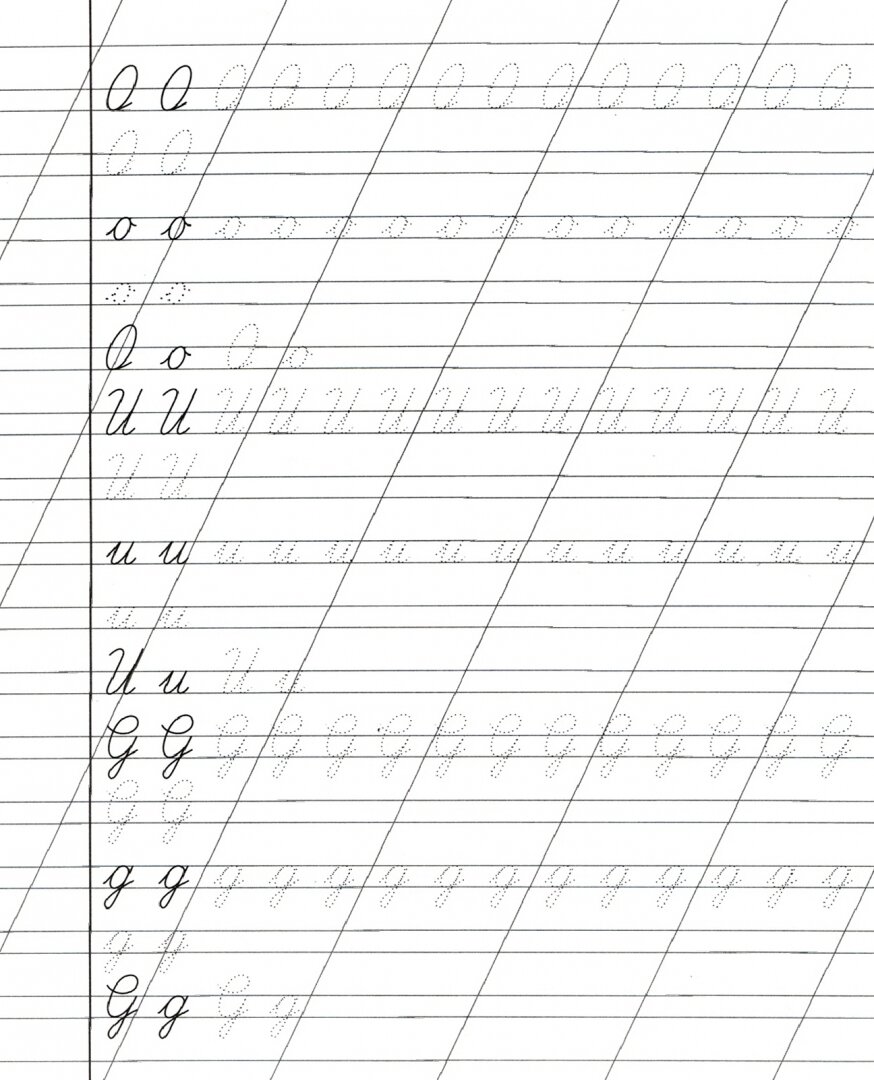 O O O O O O O O O O O O O O
O O
o o o o o o o o o o o o o o
o o
O o O o
U U U U U U U U U U U U U U
U U
u u u u u u u u u u u u u u
u u
U u U u
G G G G G G G G G G G G G G
G G
g g g g g g g g g g g g g g
g g
G g G g